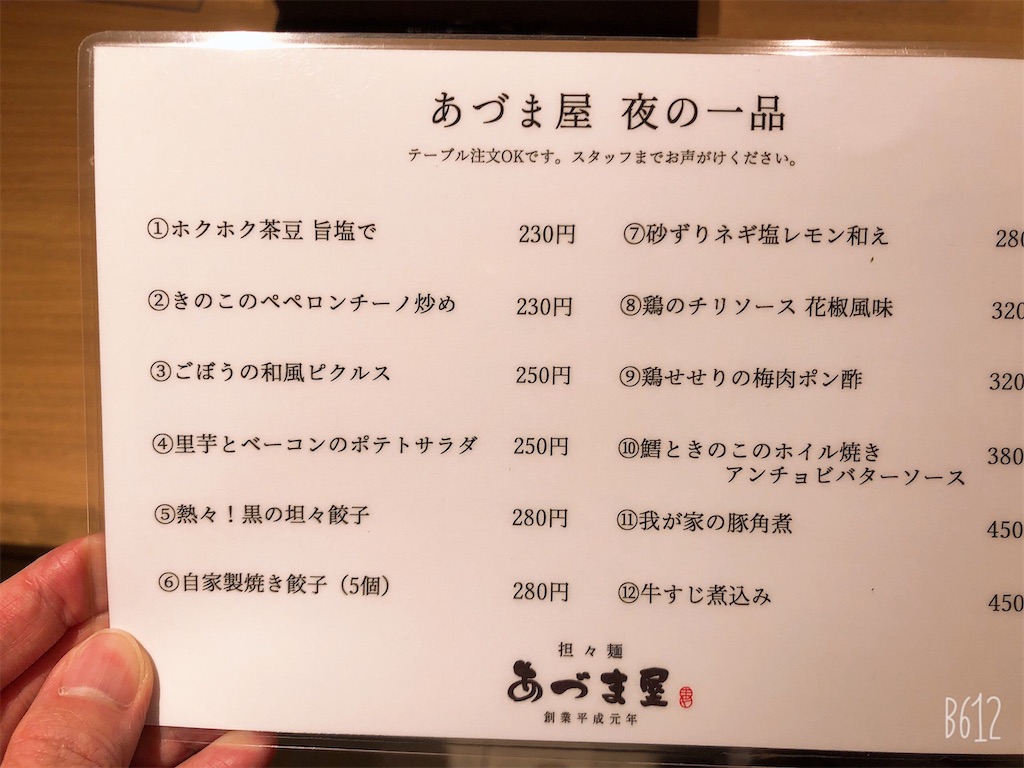 あづま屋 夜の一品
テーブル注文OKです。スタッフまでお声がけください。
①ホクホク茶豆 旨塩で 230円
②きのこのペペロンチーノ炒め 230円
③ごぼうの和風ピクルス 250円
④里芋とベーコンのポテトサラダ 250円
⑤熱々！黒の坦々餃子 280円
⑥自家製焼き餃子（5個） 280円
⑦砂ずりネギ塩レモン和え 280
⑧鶏のチリソース 花椒風味 320
⑨鶏せせりの梅肉ポン酢 320
⑩鱈ときのこのホイル焼き 380
アンチョビバターソース
⑪我が家の豚角煮 450
⑫牛すじ煮込み 450
担々麺
あづま屋
創業平成元年
B612